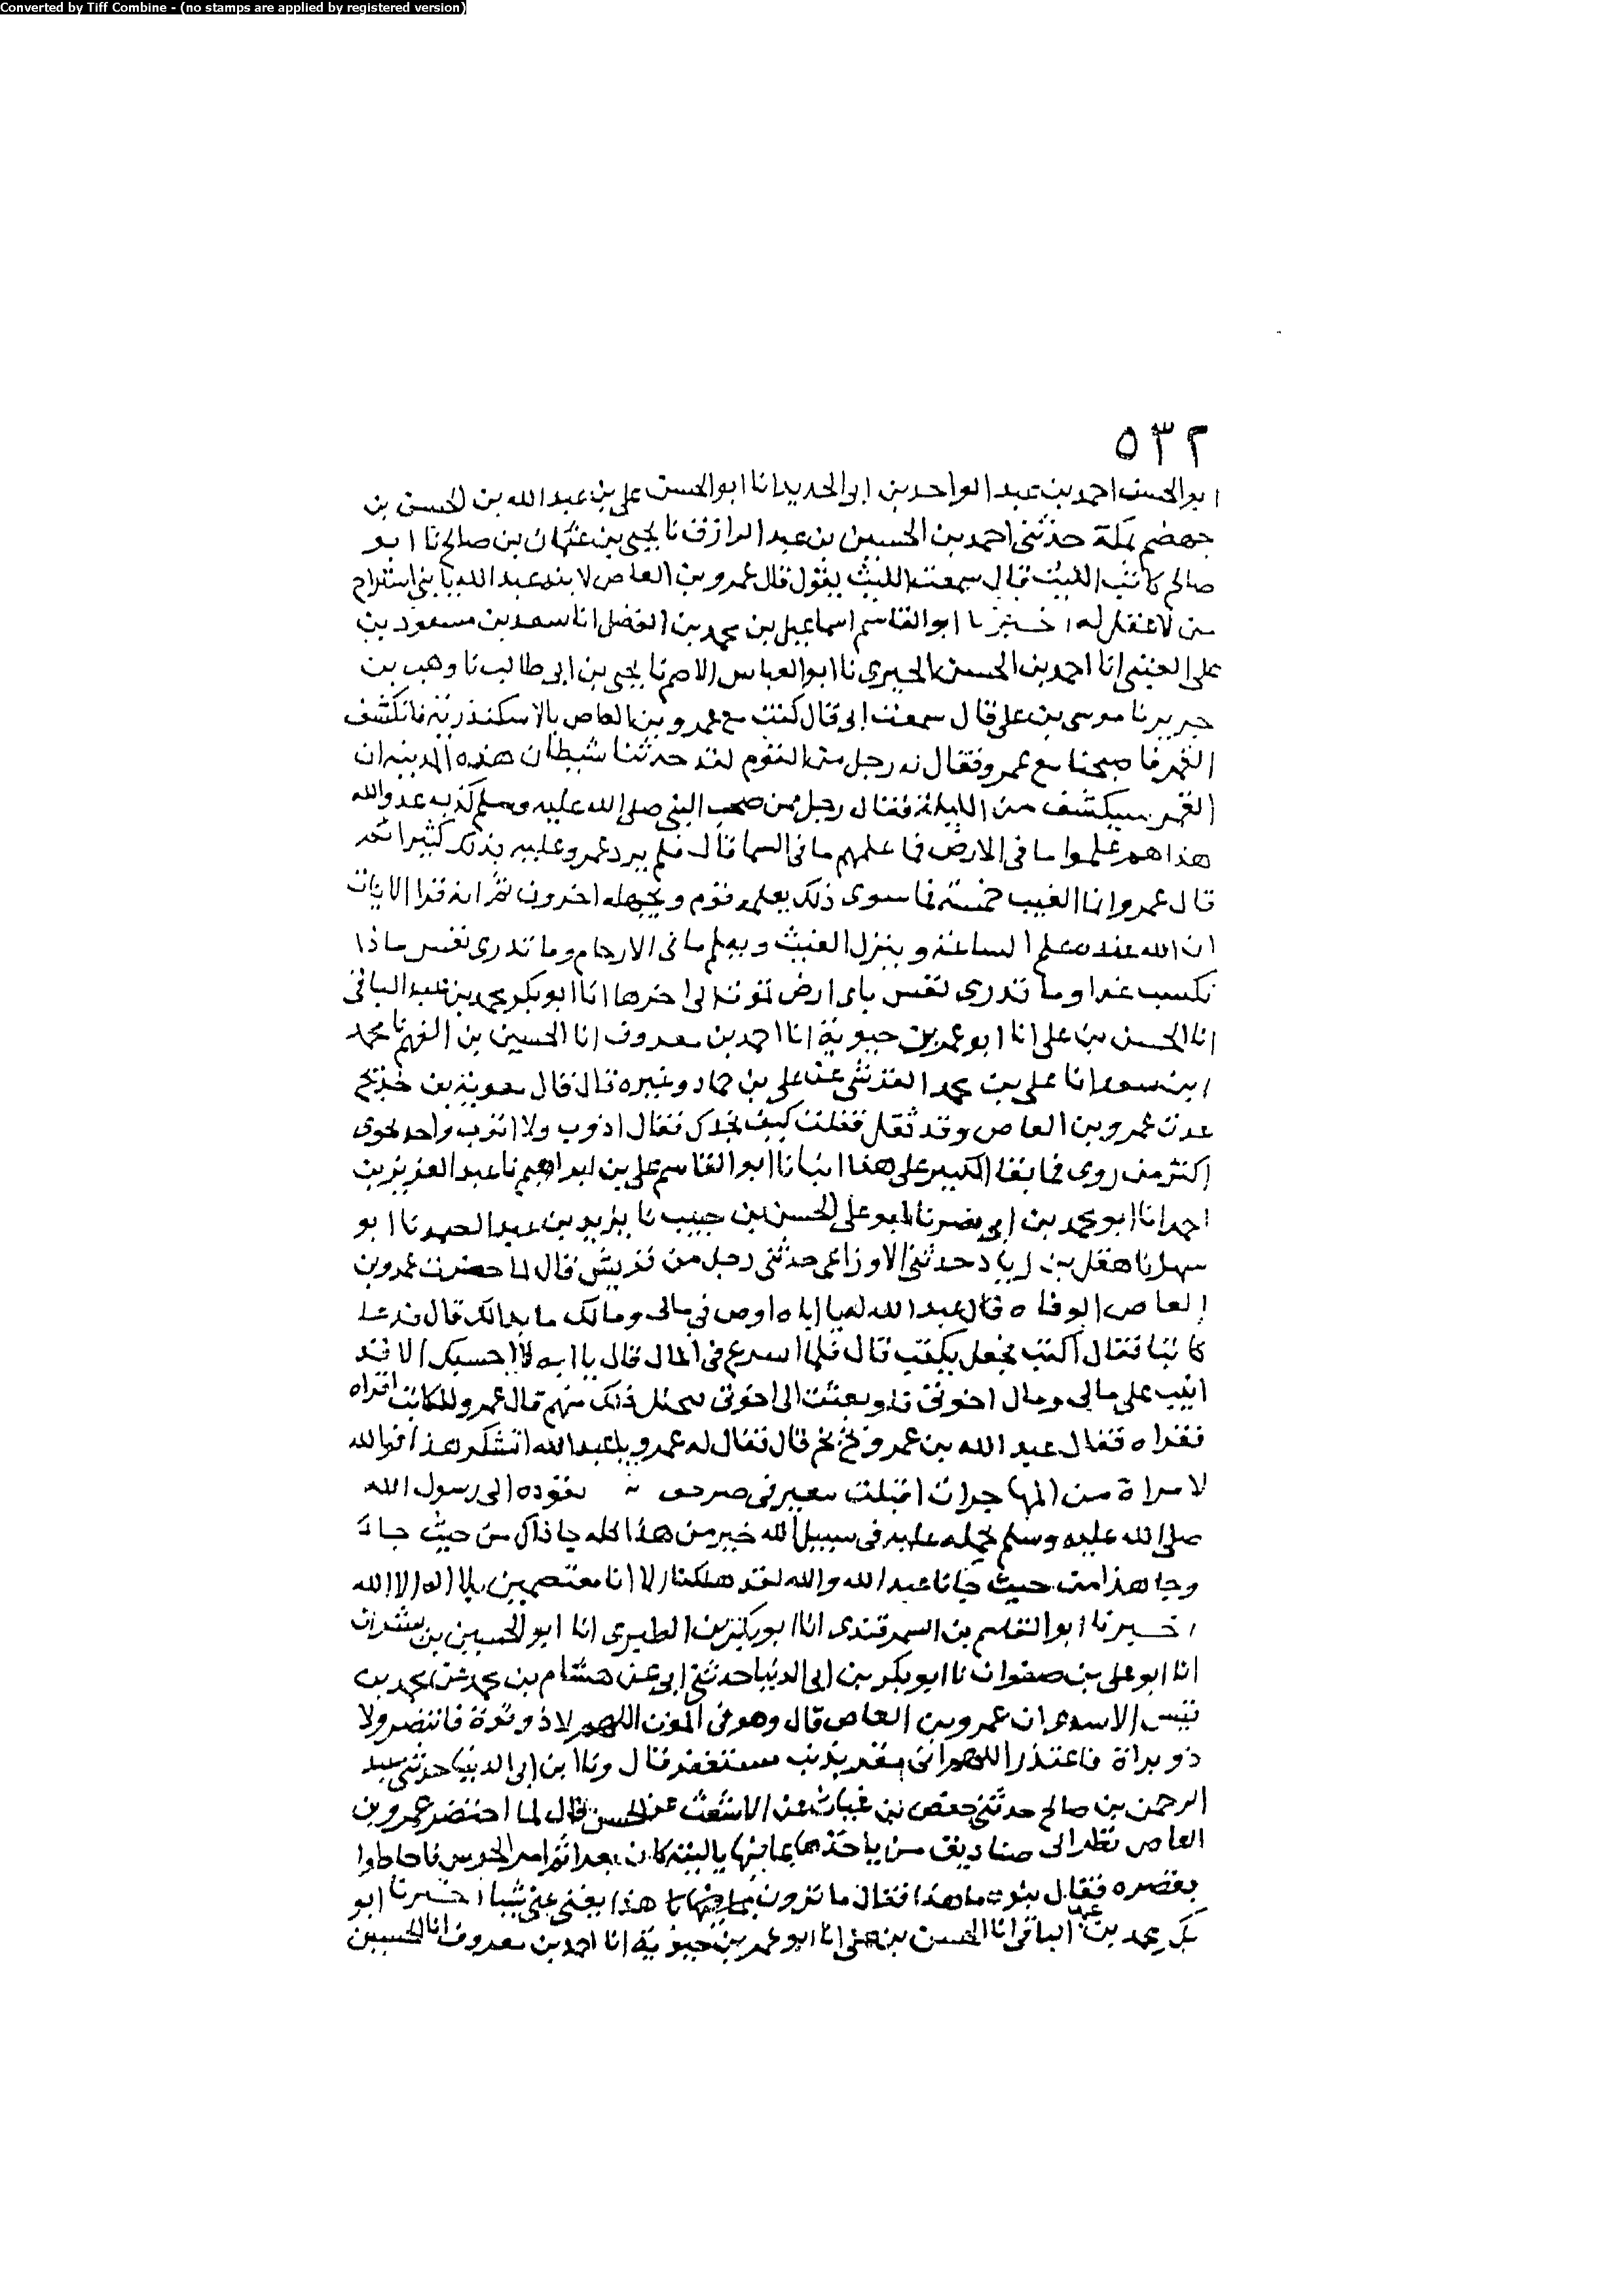 Converted by Tiff Combine - (no stamps are applied by registered version)
٥٣٢
ابو الحسن احمد بن عبد الواحد بن ابى الحديد انا ابو الحسن على بن عبد الله بن الحسن بن
جهضم بمكة حدثنى احمد بن الحسين بن عبد الرازق نا يحيى بن عثمان بن صالح نا ابو
صالح كاتب الليث قال سمعت الليث يقول قال عمرو بن العاص لابنه عبد الله يا بنى استراح
من لا عقل له اخبرنا ابو القاسم اسماعيل بن محمد بن الفضل انا سعد بن مسعود بن
على العتبى انا احمد بن الحسن الحيرى نا ابو العباس الاصم نا يحيى بن ابى طالب نا وهب بن
جرير نا موسى بن على قال سمعت ابى قال كنت مع عمرو بن العاص بالاسكندرية فانكشف
القمر فاصبحنا مع عمرو فقال له رجل من القوم لقد حدثنا شيطان هذه المدينة ان
القمر سيكشف من الليلة فقال رجل من صحب النبى صلى الله عليه وسلم كذب عدو الله
هذا هم علموا ما فى الارض فما علمهم ما فى السما قال فلم يرد عمرو عليه بذلك كثيرا ثم
قال عمرو انما الغيب خمسة فما سوى ذلك يعلمه قوم ويجهله اخرون ثم انه قرا الايات
ان الله عنده علم الساعة وينزل الغيث ويعلم ما فى الارحام وما تدرى نفس ماذا
تكسب غدا وما تدرى نفس باى ارض تموت الى اخرها انا ابو بكر محمد بن عبد الباقى
انا الحسن بن على انا ابو عمر بن حيوية انا احمد بن معروف انا الحسين بن الفهم نا محمد
ابن سعد انا على بن محمد القرشى عن على بن حماد وغيره قال قال معوية بن خديج
عدت عمرو بن العاص وقد ثقل فقلت كيف تجدك فقال اذوب ولا اثوب واجد نجوى
اكثر من روى فما بقا الكبير على هذا انبانا ابو القاسم على بن ابراهيم نا عبد العزيز بن
احمد انا ابو محمد بن ابى نصر نا ابو على الحسن بن حبيب نا يزيد بن عبد الصمد نا ابو
سهل نا هقل بن زياد حدثنى الاوزاعى حدثنى رجل من قريش قال لما حضرت عمرو بن
العاص الوفاه قال عبد الله لعيا اباه اوص فى مالى ومالك ما بدالك قال فدعا
كاتبا فقال اكتب فجعل يكتب قال فلما اسرع فى المال قال يا ابه لا احسبك الا قد
اتيت على مالى ومال اخوتى فلو بعثت الى اخوتى فتحلل ذلك منهم قال عمرو للكاتب اقراه
فقراه فقال عبد الله بن عمرو بخ بخ قال فقال له عمرو يا عبد الله اتشكر هذا فوالله
لامراة من المهاجرات اقبلت ببعير فى تقوده الى رسول الله
صلى الله عليه وسلم تحمله عليه فى سبيل الله خير من هذا كله جا ذاك من حيث جاء
وجا هذا من حيث جا نا عبد الله والله لقد هلكنا الا انا معتصمين بلا اله الا الله
اخبرنا ابو القاسم بن السمرقندى انا ابو بكر بن الطبرى انا ابو الحسين بن بشران
انا ابو على بن صفوان نا ابو بكر بن ابى الدنيا حدثنى ابى عن هشام بن محمد عن محمد بن
قيس الاسدى ان عمرو بن العاص قال وهو فى الموت اللهم لا ذو قوة فانتصر ولا
ذو براة فاعتذر اللهم انى مقر بذنب مستغفر قال ونا ابن ابى الدنيا حدثنى عبد
الرحمن بن صالح حدثنى حفص بن غياث عن الاشعث عن الحسن قال لما احتضر عمرو بن
العاص نظر الى صناديق من ياخذها بما فيها يا ليته كان بعرا ثم امر الحرس فاحاطوا
بقصره فقال بنوه ما هذا فقال ما ترون هذا يغنى عنى شيا اخبرنا ابو
بكر محمد بن عبد الباقى انا الحسن بن على انا ابو عمر بن حيوية انا احمد بن معروف انا الحسين